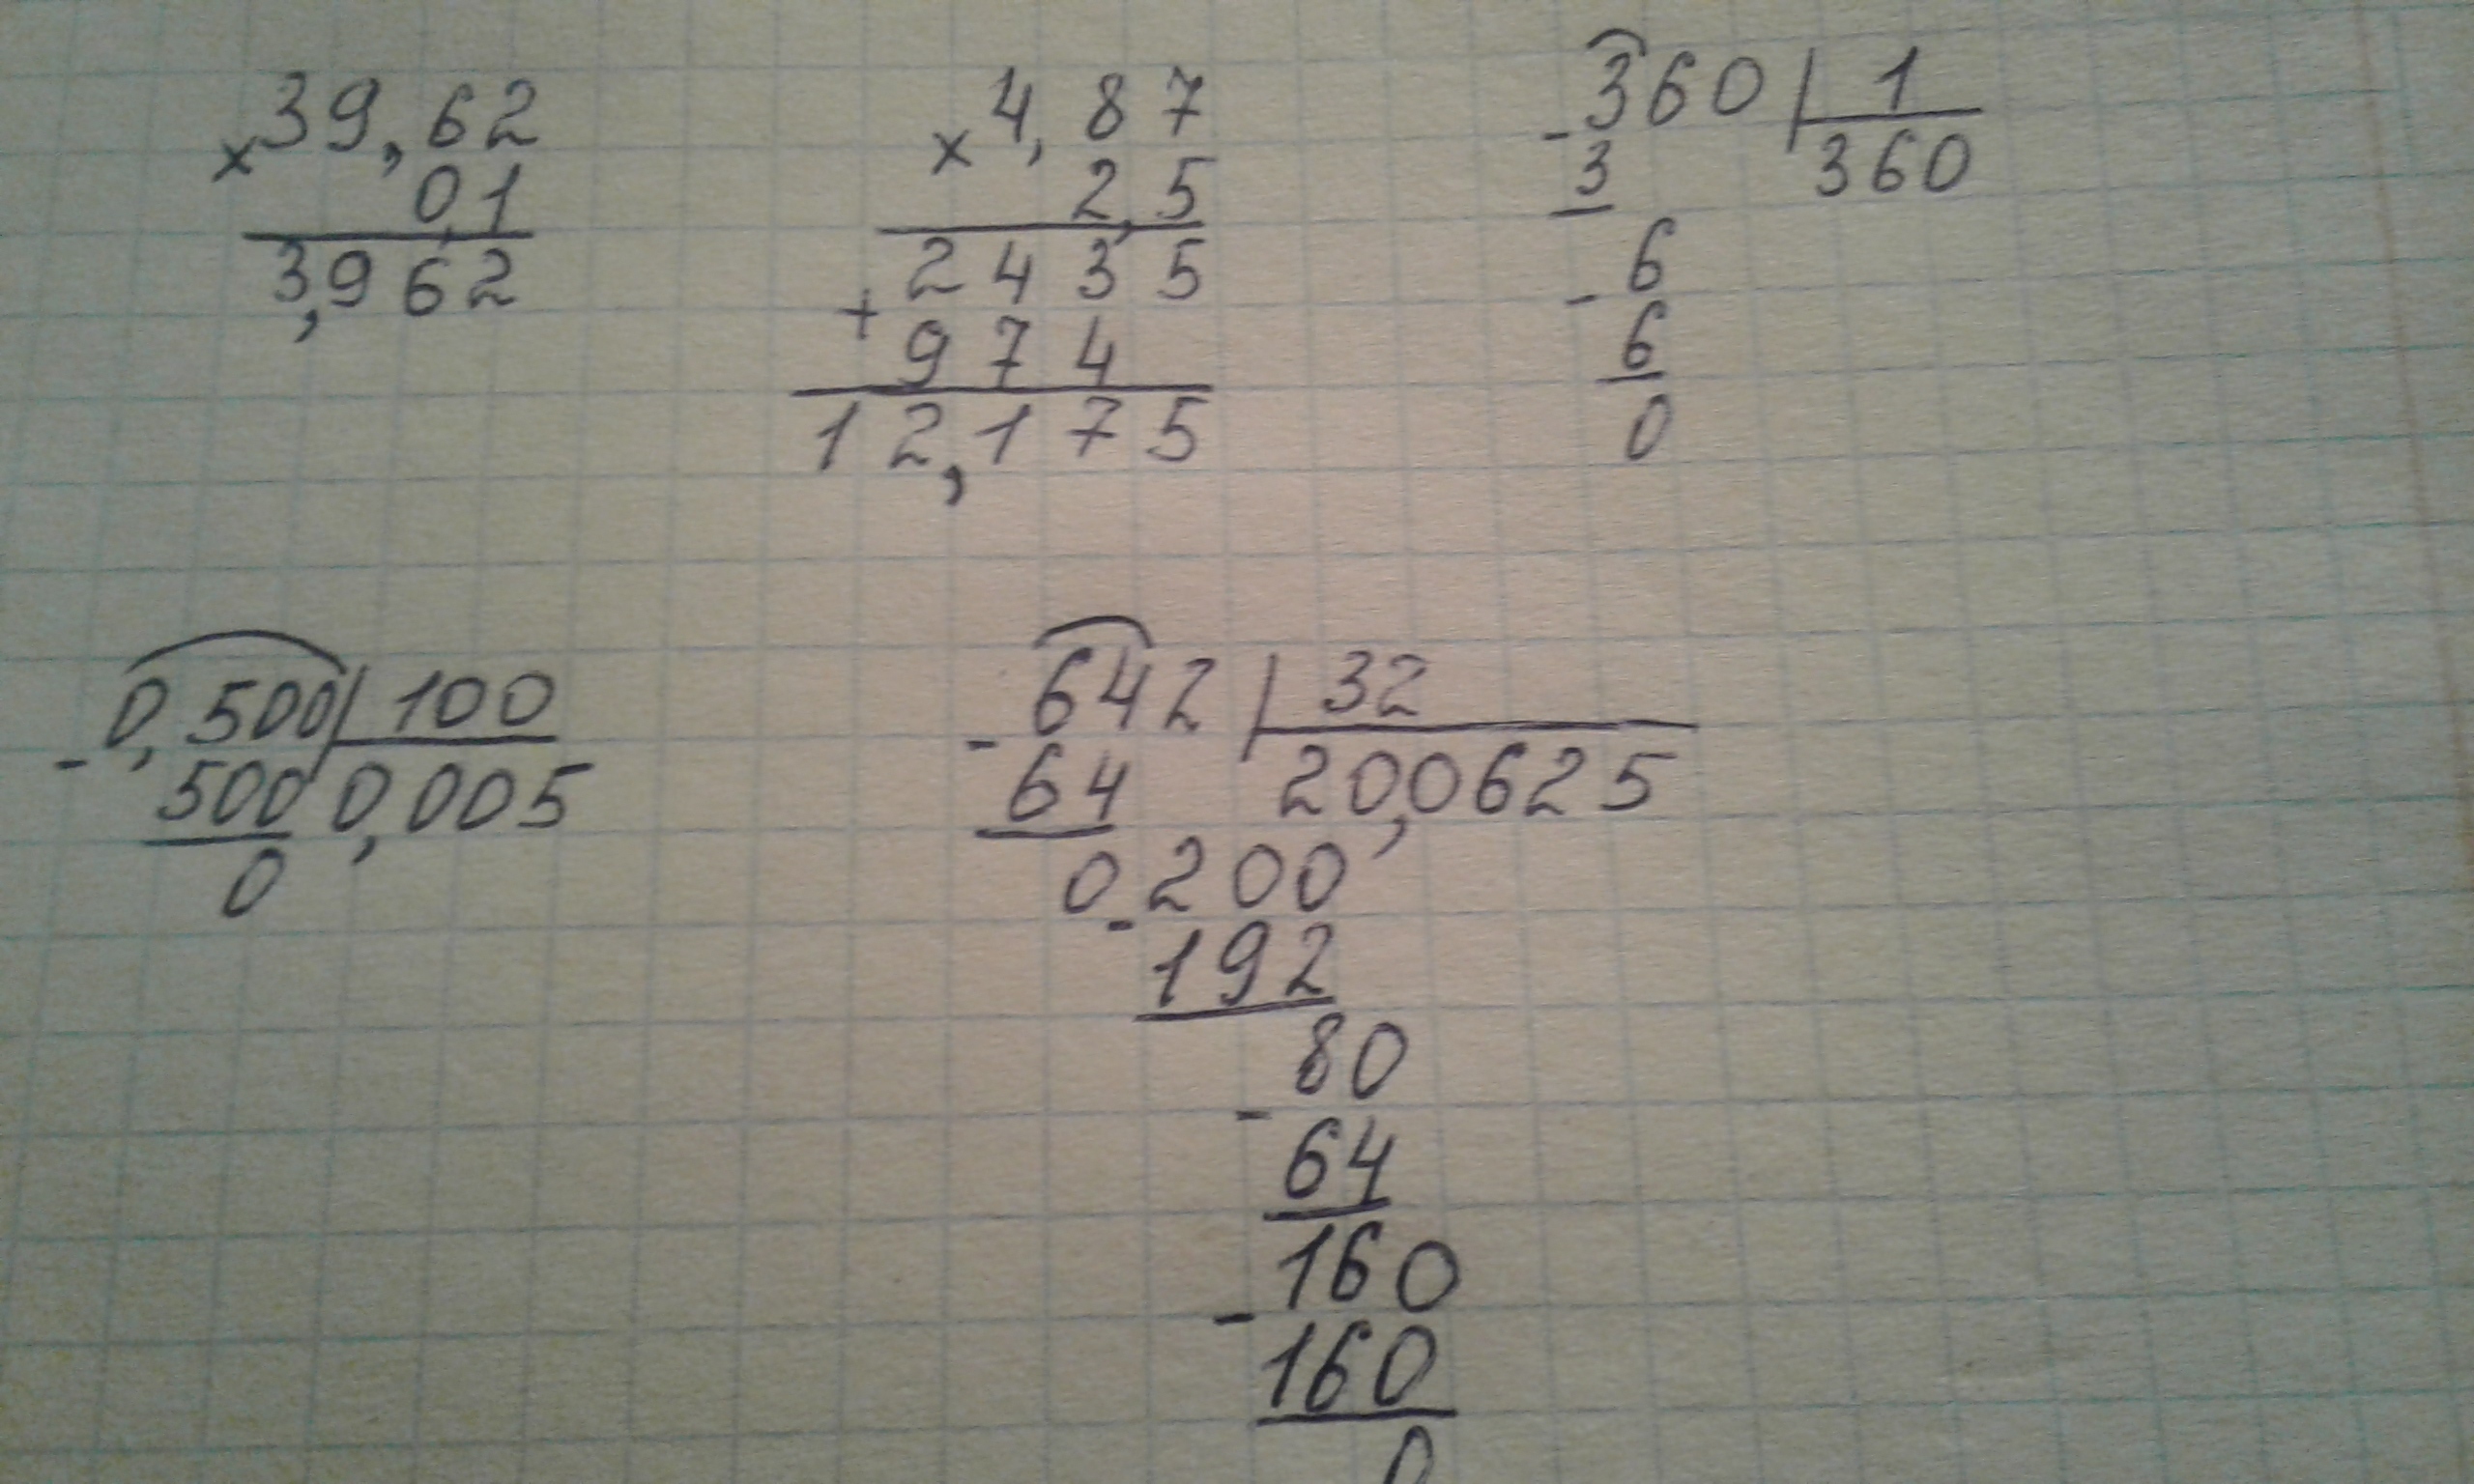 39,62
× 0,1
3,962
× 4,87
2,5
2435
+ 974
12,175
- 360 | 1
3 360
- 6
6
0
- 0,500 | 100
500 0,005
0
- 642 | 32
64 20,0625
0 - 200
192
- 80
64
- 160
160
0